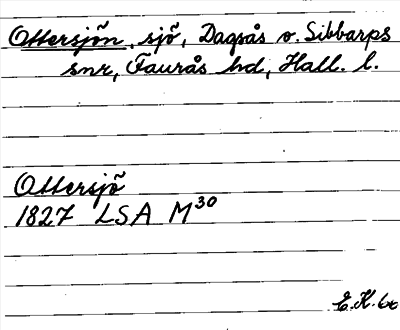 Ottersjön, sjö, Dagsås o. Sibbarps
snr, Faurås hd, Hall. l.
Ottersjö
1827 LSA M30
E.K. 60